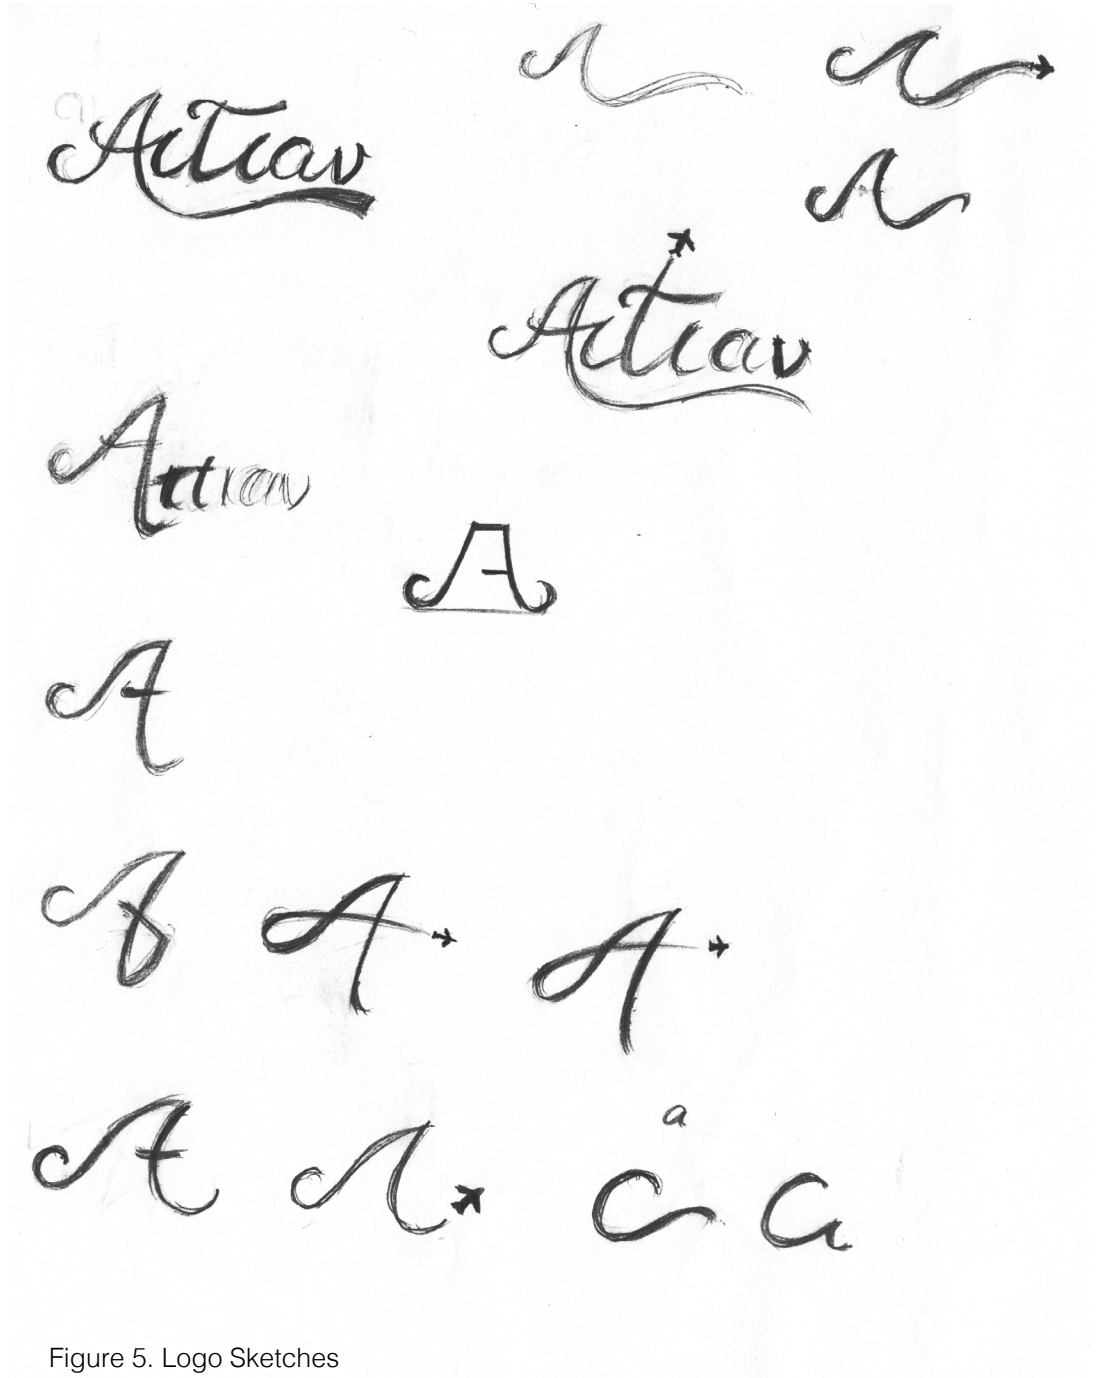 A A
Artrav
A
Artrav
Artrav
A
A
A A
a
A A a a
Figure 5. Logo Sketches